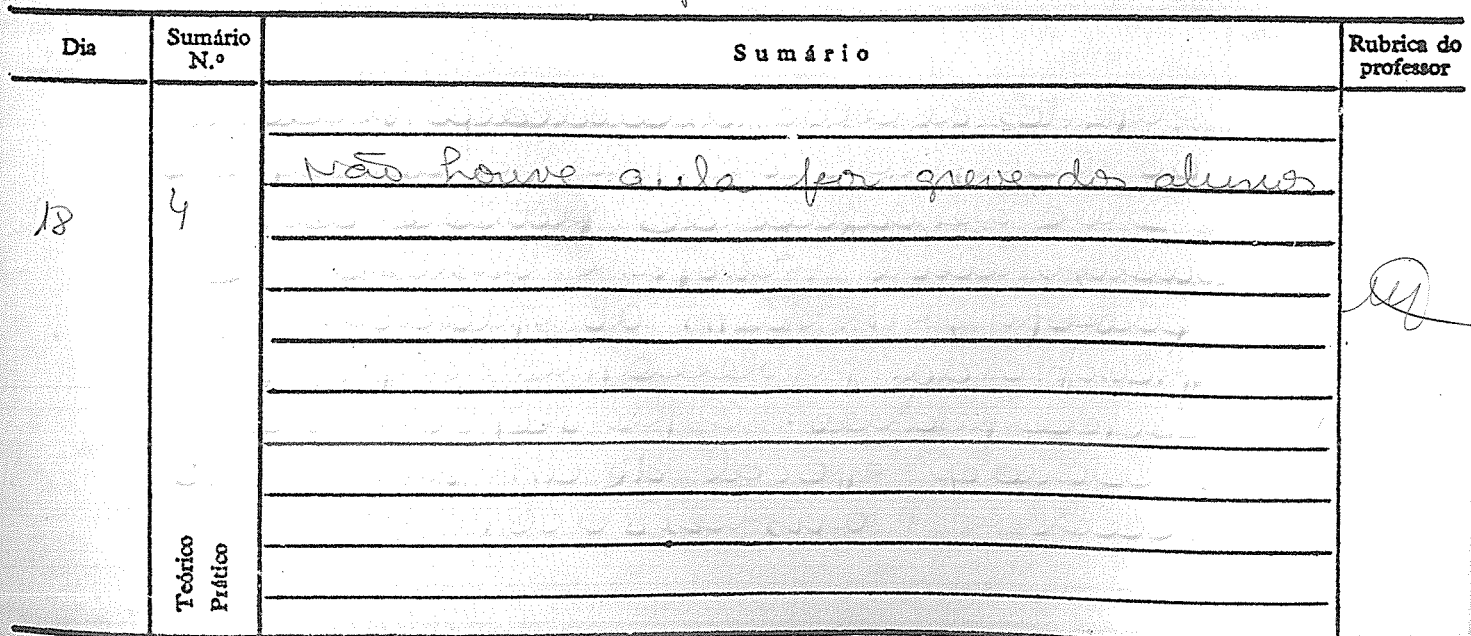 Dia
Sumário N.º
Sumário
Rubrica do professor
Não houve aula por greve dos alunos
18
4
Teórico
Prático